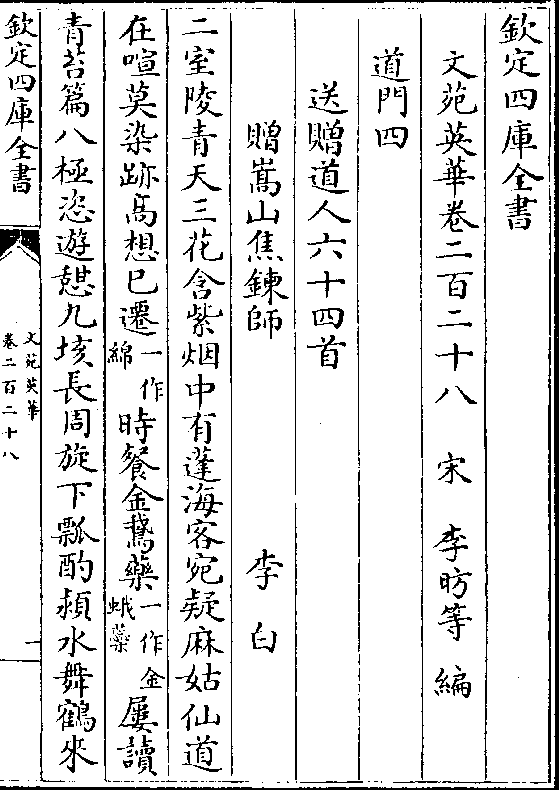 欽定四庫全書
文苑英華卷二百二十八　宋　李昉等　編
道門四
送贈道人六十四首
贈嵩山焦鍊師　李白
二室陵青天三花含紫烟中有蓬海客宛疑麻姑仙道
在喧莫染跡高想已遷一作綿時餐金鵝藥一作金蛾藥屢讀
青苔篇八極恣遊憇九垓長周旋下瓢酌潁水舞鶴來
欽定四庫全書
文苑英華
卷二百二十八
一